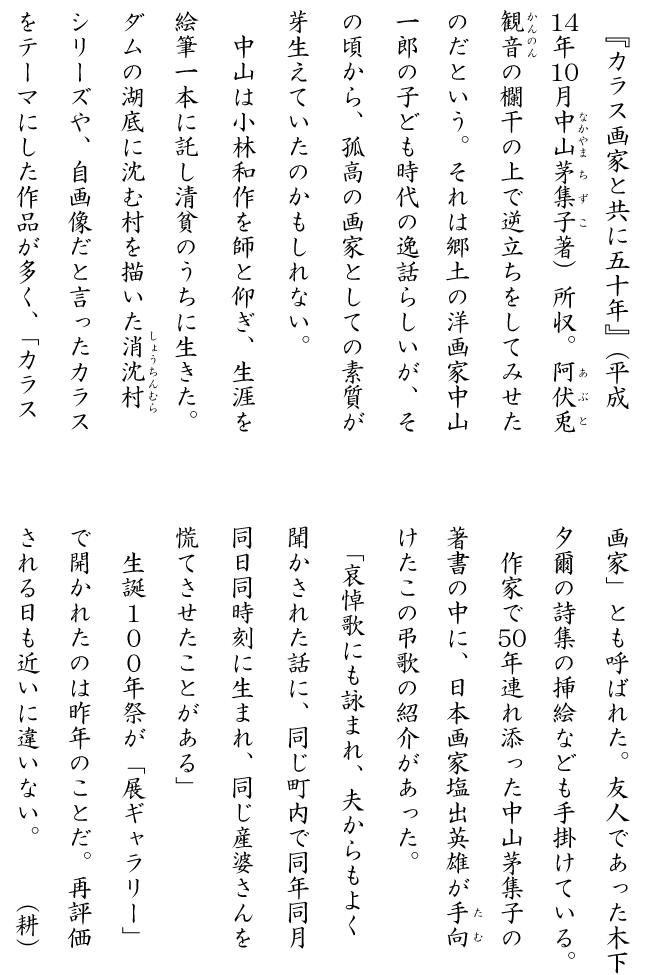 『カラス画家と共に五十年』（平成
14年10月中山茅集子著）所収。阿伏兎
観音の欄干の上で逆立ちをしてみせた
のだという。それは郷土の洋画家中山
一郎の子ども時代の逸話らしいが、そ
の頃から、孤高の画家としての素質が
芽生えていたのかもしれない。
中山は小林和作を師と仰ぎ、生涯を
絵筆一本に託し清貧のうちに生きた。
ダムの湖底に沈む村を描いた消沈村
シリーズや、自画像だと言ったカラス
をテーマにした作品が多く、「カラス
画家」とも呼ばれた。友人であった木下
夕爾の詩集の挿絵なども手掛けている。
作家で50年連れ添った中山茅集子の
著書の中に、日本画家塩出英雄が手向
けたこの弔歌の紹介があった。
「哀悼歌にも詠まれ、夫からもよく
聞かされた話に、同じ町内で同年同月
同日同時刻に生まれ、同じ産婆さんを
慌てさせたことがある」
生誕１００年祭が「展ギャラリー」
で開かれたのは昨年のことだ。再評価
される日も近いに違いない。（耕）
なかやま ちずこ
あぶと
かんのん
しょうちんむら
たむ